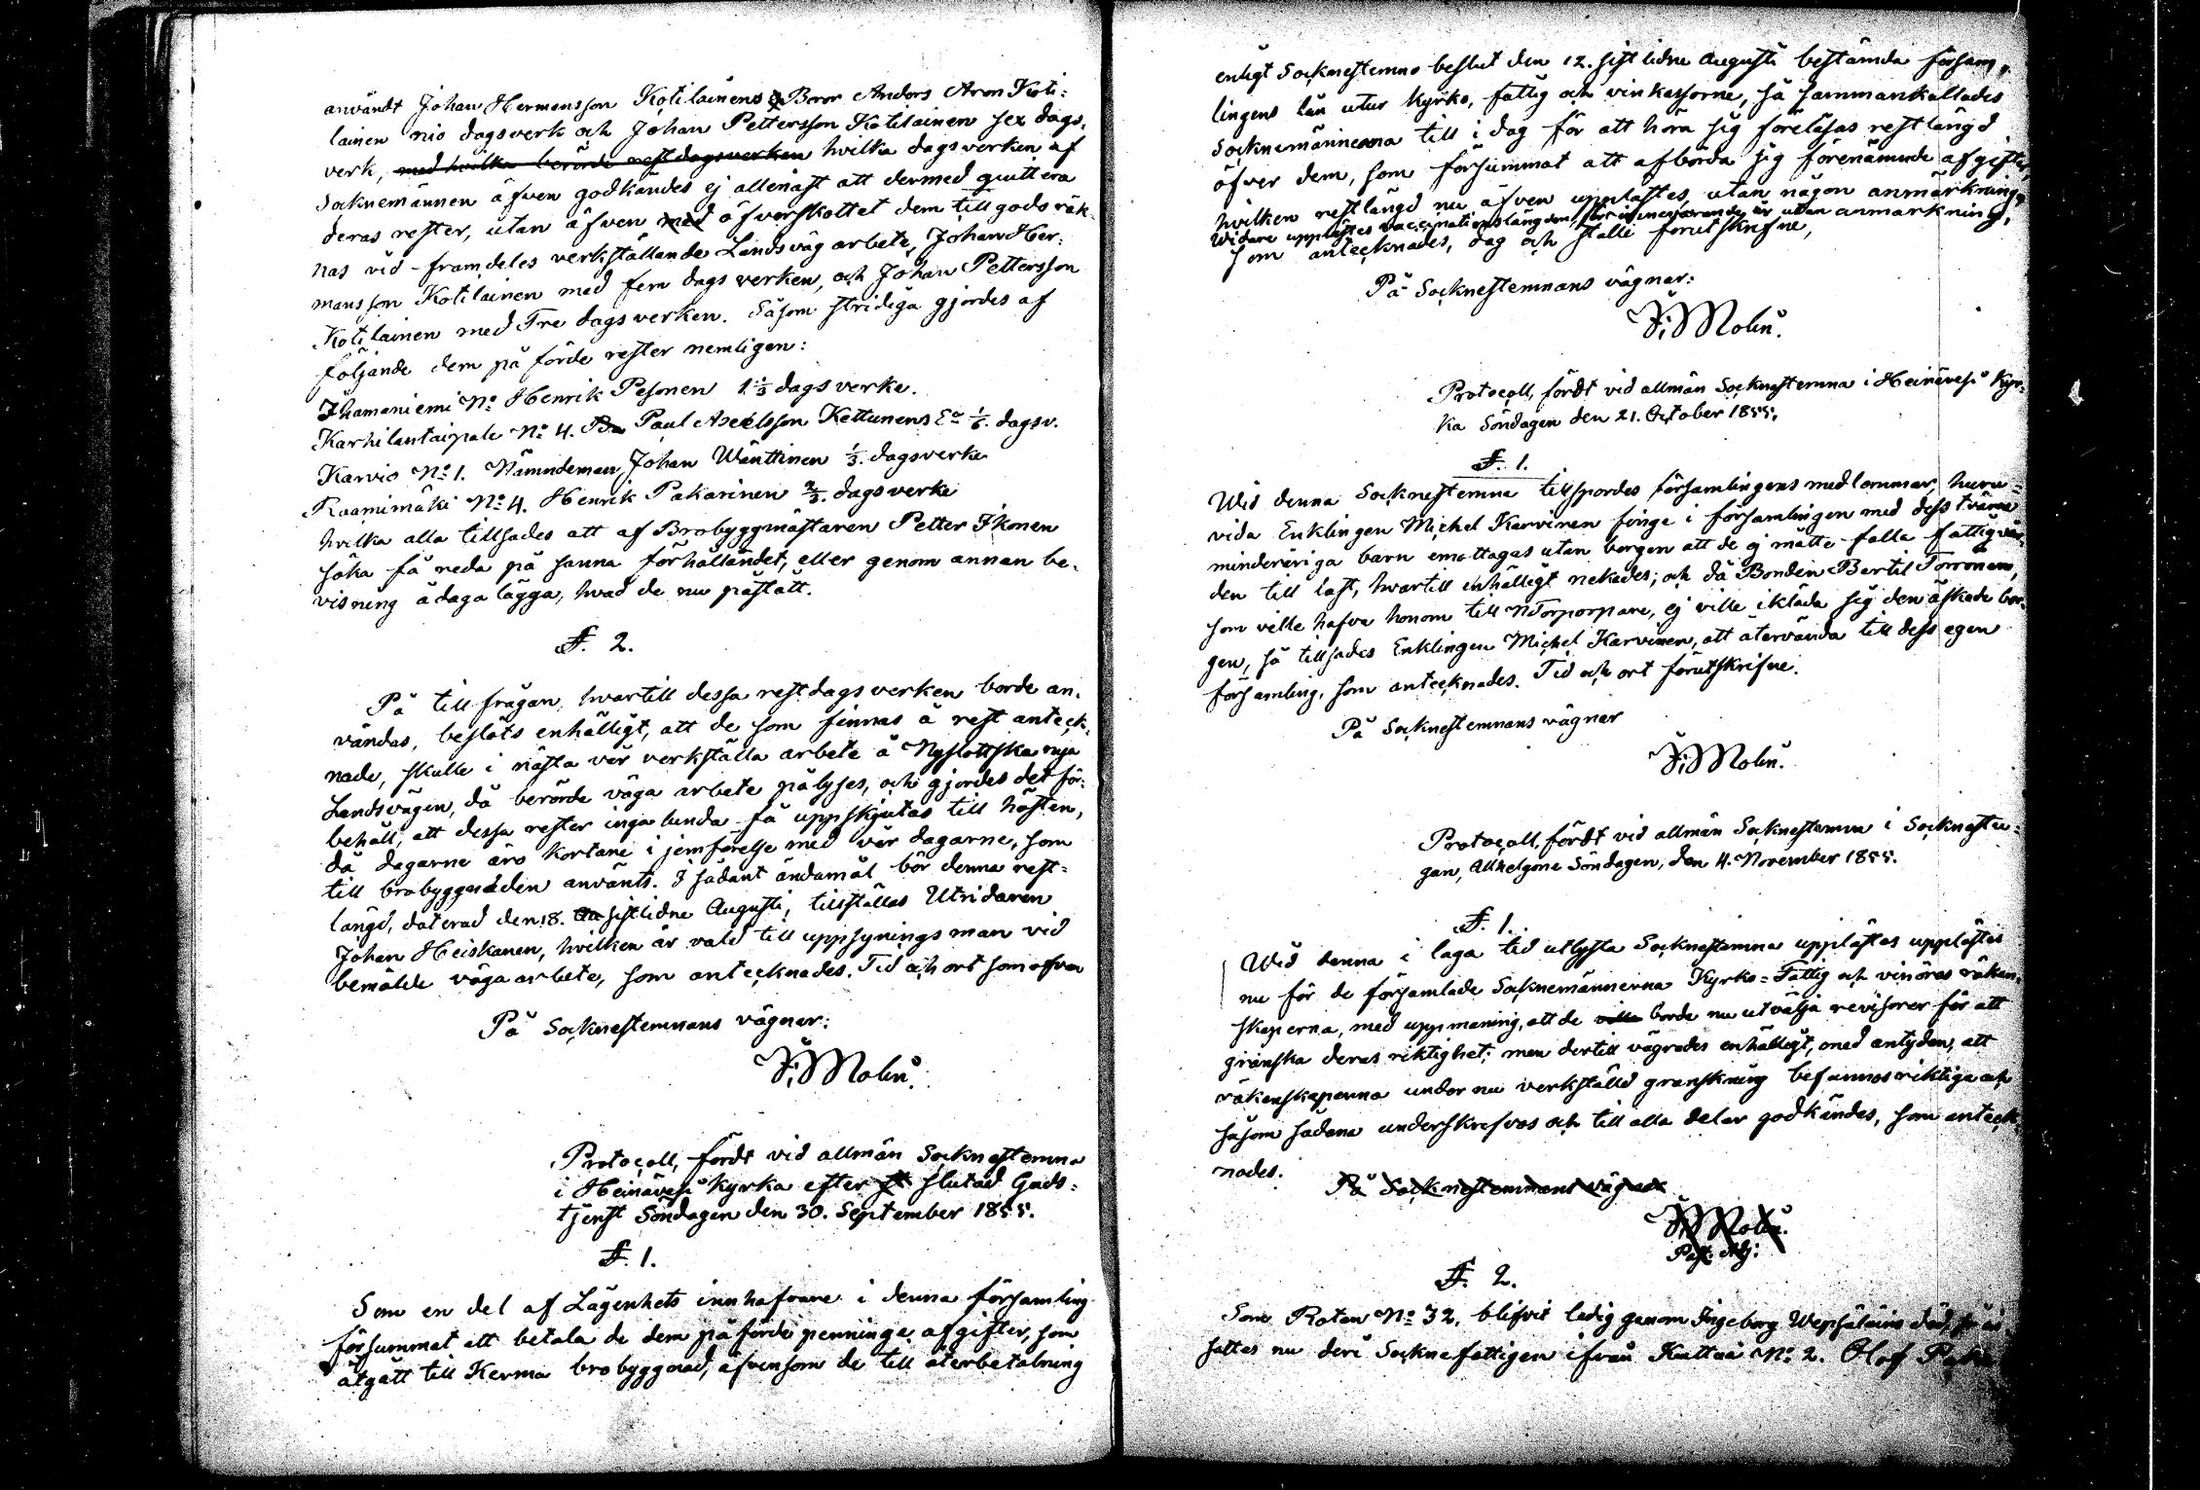 användt Johan Hermansson Kotilainens Bror Anders Aron Koti=
lainen nio dagsverk och Johan Pettersson Kotilainen sex dags,
verk, med hvilka berörde restdagsverken hvilka dagsverken af
Socknemännen äfven godkändes ej allenast att dermed quittera
deras rester, utan äfven med öfverskottet dem till godo räk-
nas vid framdeles verkställande Landsväg arbete, Johan Her=
mansson Kotilainen med fem dagsverken, och Johan Pettersson
Kotilainen med Tre dagsverken. Såsom stridiga gjordes af
följande dem på förde rester nemligen:
Ihamaniemi No Henrik Pesonen 1 1/3 dagsverke.
Karhilantaipale No 4. Paul Axelsson Kettunens 1/6. dagsv.
Karvio No 1. Nämndeman Johan Wänttinen 1/3. dagsverke
Raamimäki No 4. Henrik Pakarinen 2/3. dagsverke
hvilka alla tillsades att af Brobyggmästaren Petter Ikonen
söka få reda på sanna förhållandet, eller genom annan be,
visning ådaga lägga, hvad de nu påstått.
§. 2.
På till frågan, hvartill dessa restdagsverken borde an,
vändas, beslöts enhälligt, att de som finnas å rest anteck,
nade, skulle i nästa vår verkställa arbete å Nyslottska nya
Landsvägen, då berörde väga arbete pålyses, och gjordes det för-
behåll, att dessa rester ingalunda få uppskjutas till hösten,
då dagarne äro kortare i jemförelse med vår dagarne, som
till brobyggnaden använts. I sådant ändamål bör denna rest=
längd, daterad den 18. sistlidne Augusti, tillställas Utridaren
Johan Heiskanen, hvilken är vald till uppsynings man vid
bemälde väga arbete, som antecknades. Tid och ort som ofvan
På Socknestemnans vägnar:
F: Molin.
Protocoll, fördt vid allmän Socknestemma
i Heinävesi Kyrka efter slutad Guds=
tjenst Söndagen den 30. September 1855.
§. 1.
Som en del af Lägenhets innhafvare i denna församling
försummat att betala de dem påförde penninge afgifter, som
åtgått till Kerma brobyggnad, äfvensom de till återbetalning
enligt Socknestemno beslut den 12. sistlidne Augusti bestämda försam,
lingens lån utur Kyrko, fattig och vinkassorne, så sammankallades
Socknemännerna till i dag för att höra sig föreläsas restlängd
öfver dem, som försummat att afbörda sig förenämnde afgifter,
hvilken restlängd nu äfven upplästes, utan någon anmärkning,
Widare upplästes vaccinationslängden för innevarande år utan anmärkning,
som antecknades, dag och ställe förutskrifne,
På Socknestemnans vägnar:
F: Molin.
Protocoll, fördt vid allmän Socknestemma i Heinävesi Kyr=
ka Söndagen den 21. October 1855.
§. 1.
Wid denna Socknestemma tillspordes församlingens medlemmar, huru=
vida Enklingen Michel Karvinen finge i församlingen med dess tvänne
minderåriga barn emottagas utan borgen att de ej måtte falla fattigvår,
den till last, hvartill enhälligt nekades; och då Bonden Bertil Torronen,
som velle hafva honom till Torparpare, ej ville ikläda sig den äskade bor,
gen, så tillsades Enklingen Michel Karvinen, att återvända till dess egen
församling, som antecknades. Tid och ort förutskrifne.
På Socknestemnans vägnar
F: Molin.
Protocoll, fördt vid allmän Socknestemma i Socknestu=
gan, Allhelgone Söndagen, den 4. November 1855.
§. 1.
Wid denna i laga tid utlysta Socknestemma upplästes upplästes
nu för de församlade Socknemännerna Kyrko= Fattig och vinöres räken,
skaperna, med uppmaning, att de ville borde nu utvälja revisorer för att
granska deras riktighet; men dertill vägrades enhälligt, med antyden, att
räkenskaperna under nu verkställd granskning befunnos riktiga och
såsom sådana underskrefvos och till alla delar godkändes, som anteck,
nades.
På Socknestemmans vägnar
F: Molin.
Past. Adj:
§. 2.
Som Roten No 32. blifvit ledig genom Ingeborg Wepsäläins död, så in
sattes nu deri Socknefattigen ifrån No 2. Olof